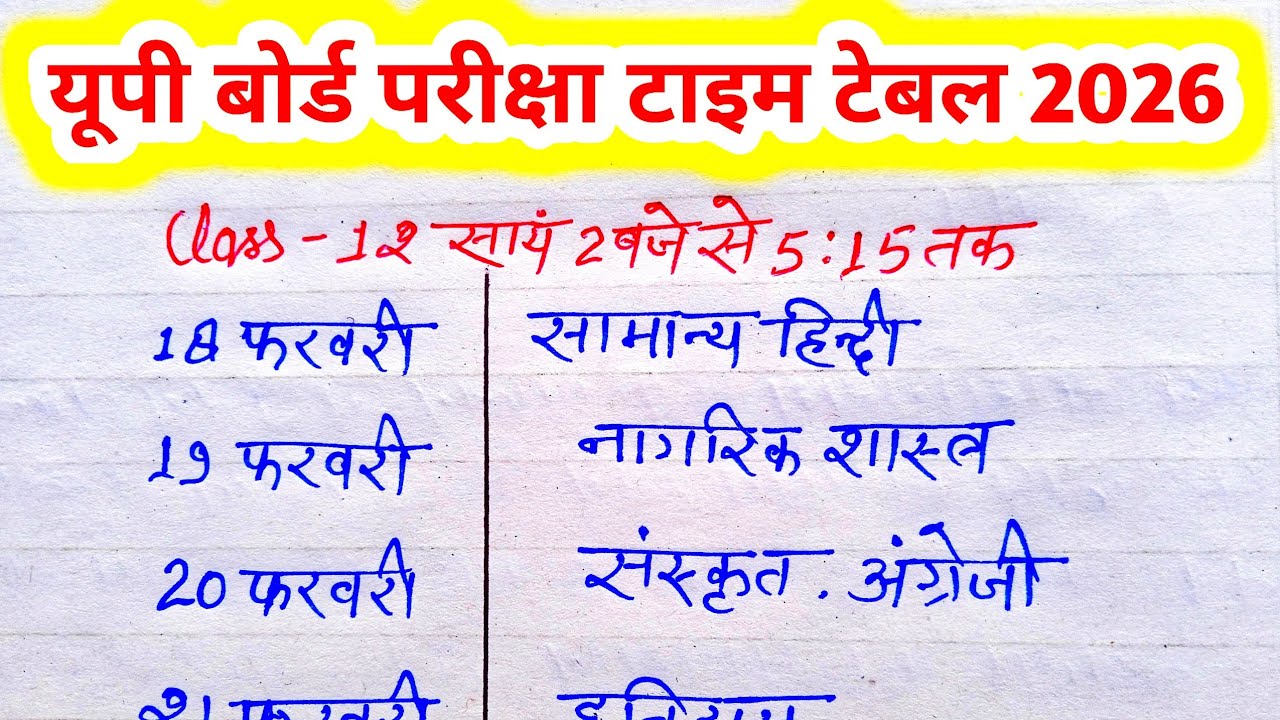 यूपी बोर्ड परीक्षा टाइम टेबल 2026
Class - 12 सायं 2 बजे से 5:15 तक
18 फरवरी सामान्य हिन्दी
19 फरवरी नागरिक शास्त्र
20 फरवरी संस्कृत . अंग्रेजी
21 फरवरी